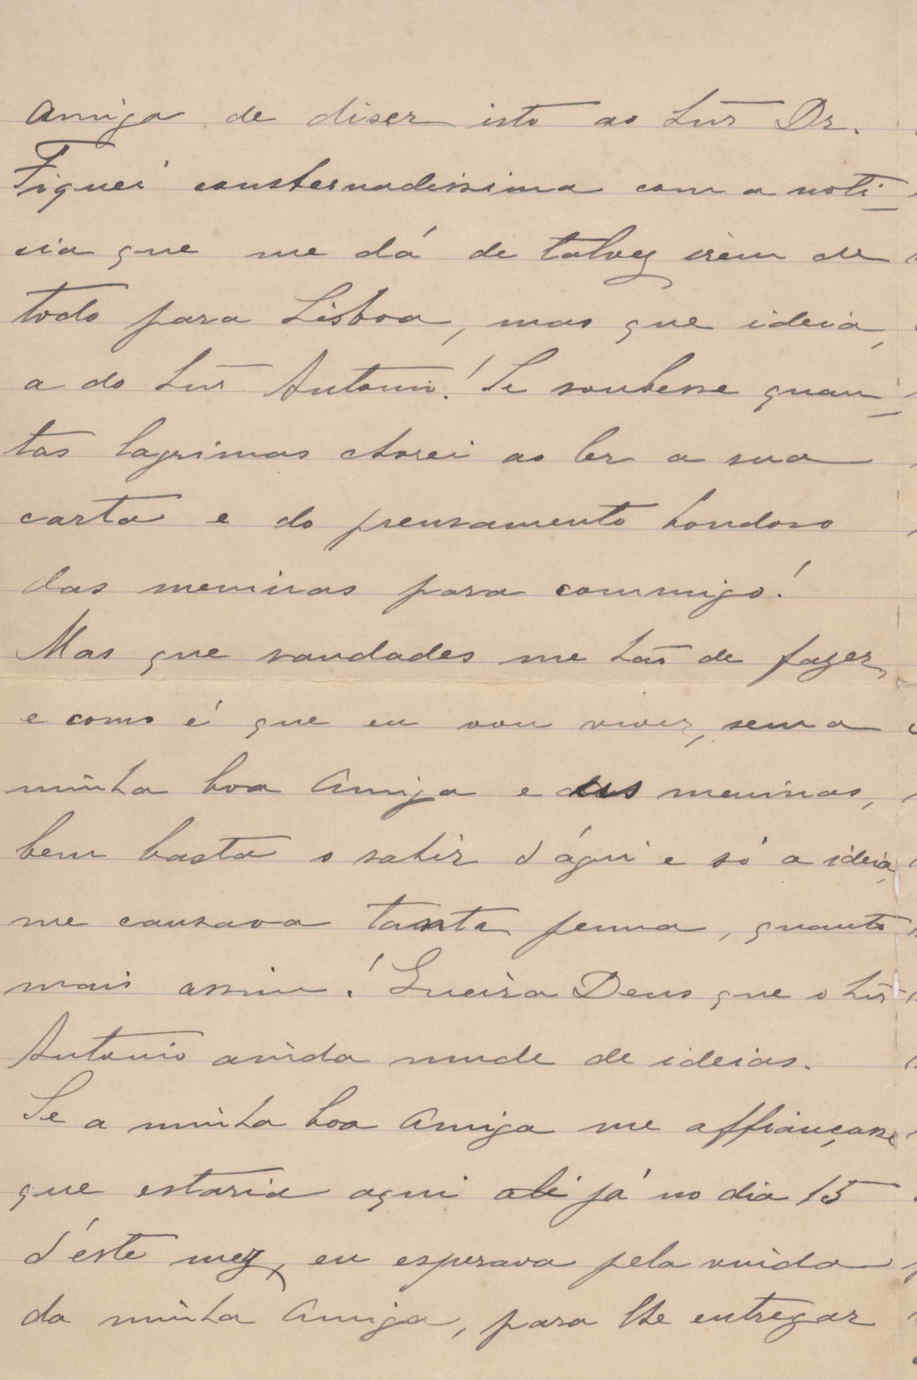 amiga de diser isto ao Snr Dr.
Fiquei consternadissima com a noti-
cia que me dá de talvez irem de
todo para Lisboa, mas que ideia,
a do Snr Antonio! Se soubesse quan-
tas lagrimas chorei ao ler a sua
carta e do pensamento bondoso
das meninas para commigo!
Mas que saudades me hão de fazer,
e como é que eu vou viver, sem a
minha boa Amiga e das meninas,
bem basta o sahir d'áqui e só a ideia,
me causava tanta penna, quanto
mais assim! Queira Deus que o Snr
Antonio ainda mude de ideias.
Se a minha boa Amiga me affiançasse
que estaria aqui até já no dia 15
d'éste mez, eu esperava pela vinda
da minha Amiga, para lhe entregar